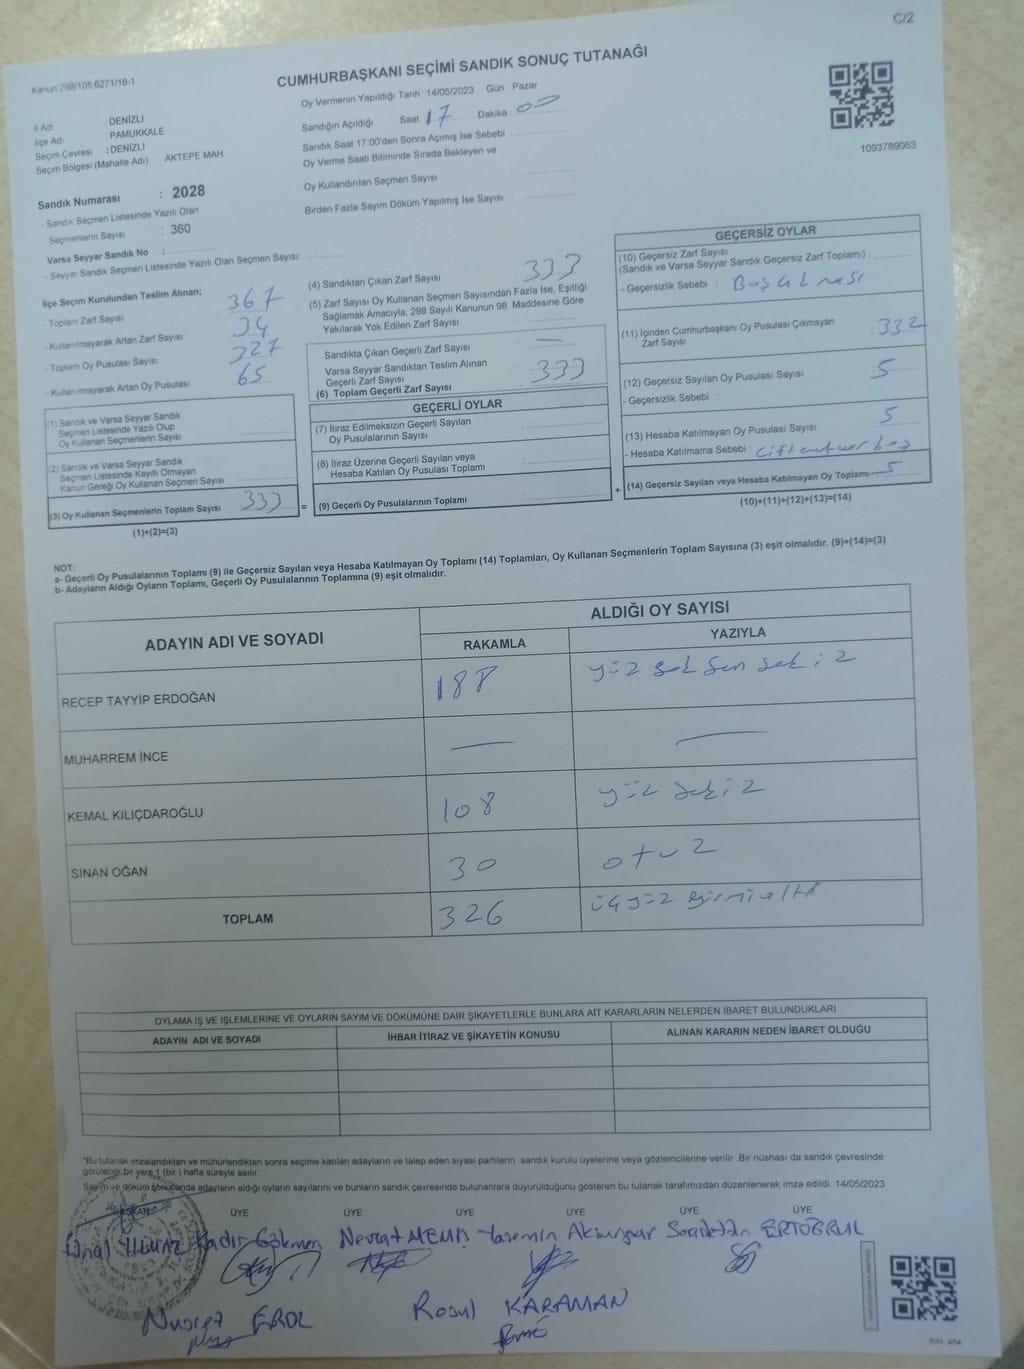 C/2
Kanun 298/105;6271/18-1
CUMHURBAŞKANI SEÇİMİ SANDIK SONUÇ TUTANAĞI
İl Adı : DENİZLİ
İlçe Adı : PAMUKKALE
Seçim Çevresi : DENİZLİ
Seçim Bölgesi (Mahalle Adı) : AKTEPE MAH.
Sandık Numarası : 2028
- Sandık Seçmen Listesinde Yazılı Olan
Seçmenlerin Sayısı : 360
Varsa Seyyar Sandık No :
- Seyyar Sandık Seçmen Listesinde Yazılı Olan Seçmen Sayısı:
Oy Vermenin Yapıldığı Tarih : 14/05/2023 Gün Pazar
Sandığın Açıldığı Saat 17 Dakika 00
Sandık Saat 17:00'den Sonra Açımış İse Sebebi
Oy Verme Saati Bitiminde Sırada Bekleyen ve
Oy Kullandırılan Seçmen Sayısı :
Birden Fazla Sayım Döküm Yapılmış İse Sayısı :
1093789063
İlçe Seçim Kurulundan Teslim Alınan;
- Toplam Zarf Sayısı : 367
- Kullanılmayarak Artan Zarf Sayısı : 34
- Toplam Oy Pusulası Sayısı : 327
- Kullanılmayarak Artan Oy Pusulası : 65
(1) Sandık ve Varsa Seyyar Sandık
Seçmen Listesinde Yazılı Olup
Oy Kullanan Seçmenlerin Sayısı :
(2) Sandık ve Varsa Seyyar Sandık
Seçmen Listesinde Kayıtlı Olmayan
Kanun Gereği Oy Kullanan Seçmen Sayısı :
(3) Oy Kullanan Seçmenlerin Toplam Sayısı : 333 =
(1)+(2)=(3)
(4) Sandıktan Çıkan Zarf Sayısı : 333
(5) Zarf Sayısı Oy Kullanan Seçmen Sayısından Fazla İse, Eşitliği
Sağlamak Amacıyla, 298 Sayılı Kanunun 98. Maddesine Göre
Yakılarak Yok Edilen Zarf Sayısı :
Sandıkta Çıkan Geçerli Zarf Sayısı : —
Varsa Seyyar Sandıktan Teslim Alınan
Geçerli Zarf Sayısı : 333
(6) Toplam Geçerli Zarf Sayısı
GEÇERLİ OYLAR
(7) İtiraz Edilmeksizin Geçerli Sayılan
Oy Pusulalarının Sayısı :
(8) İtiraz Üzerine Geçerli Sayılan veya
Hesaba Katılan Oy Pusulası Toplamı :
(9) Geçerli Oy Pusulalarının Toplamı : +
GEÇERSİZ OYLAR
(10) Geçersiz Zarf Sayısı
(Sandık ve Varsa Seyyar Sandık Geçersiz Zarf Toplamı) :
- Geçersizlik Sebebi : Boş olması
(11) İçinden Cumhurbaşkanı Oy Pusulası Çıkmayan
Zarf Sayısı : 332
(12) Geçersiz Sayılan Oy Pusulası Sayısı : 5
- Geçersizlik Sebebi :
(13) Hesaba Katılmayan Oy Pusulası Sayısı : 5
- Hesaba Katılmama Sebebi :
(14) Geçersiz Sayılan veya Hesaba Katılmayan Oy Toplamı : 5
(10)+(11)+(12)+(13)=(14)
NOT:
a- Geçerli Oy Pusulalarının Toplamı (9) ile Geçersiz Sayılan veya Hesaba Katılmayan Oy Toplamı (14) Toplamları, Oy Kullanan Seçmenlerin Toplam Sayısına (3) eşit olmalıdır. (9)+(14)=(3)
b- Adayların Aldığı Oyların Toplamı, Geçerli Oy Pusulalarının Toplamına (9) eşit olmalıdır.
ADAYIN ADI VE SOYADI ALDIĞI OY SAYISI
RAKAMLA YAZIYLA
RECEP TAYYİP ERDOĞAN 188 yüz seksen sekiz
MUHARREM İNCE — —
KEMAL KILIÇDAROĞLU 108 yüz sekiz
SİNAN OĞAN 30 otuz
TOPLAM 326 üç yüz yirmi altı
OYLAMA İŞ VE İŞLEMLERİNE VE OYLARIN SAYIM VE DÖKÜMÜNE DAİR ŞİKAYETLERLE BUNLARA AİT KARARLARIN NELERDEN İBARET BULUNDUKLARI
ADAYIN ADI VE SOYADI İHBAR İTİRAZ VE ŞİKAYETİN KONUSU ALINAN KARARIN NEDEN İBARET OLDUĞU
*Bu tutanak imzalandıktan ve mühürlendikten sonra seçime katılan adayların ve talep eden siyasi partilerin sandık kurulu üyelerine veya gözlemcilerine verilir .Bir nüshası da sandık çevresinde
görülecek bir yere 1 (bir ) hafta süreyle asılır.
Sayım ve döküm sonucunda adayların aldığı oyların sayılarını ve bunların sandık çevresinde bulunanlara duyurulduğunu gösteren bu tutanak tarafımızdan düzenlenerek imza edildi. 14/05/2023
BAŞKAN ÜYE ÜYE ÜYE ÜYE ÜYE ÜYE
Ünal YILMAZ Kadir Gökmen Nevzat Yasemin Akbunar Saadettin ERTUĞRUL
Nusret EROL Rasul KARAMAN